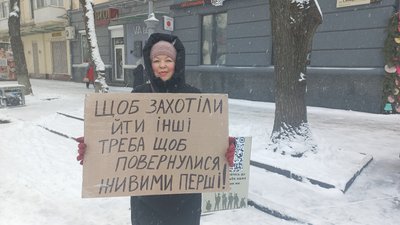 ЩОБ ЗАХОТІЛИ
ЙТИ ІНШІ
ТРЕБА ЩОБ
ПОВЕРНУЛИСЯ
ЖИВИМИ ПЕРШІ!